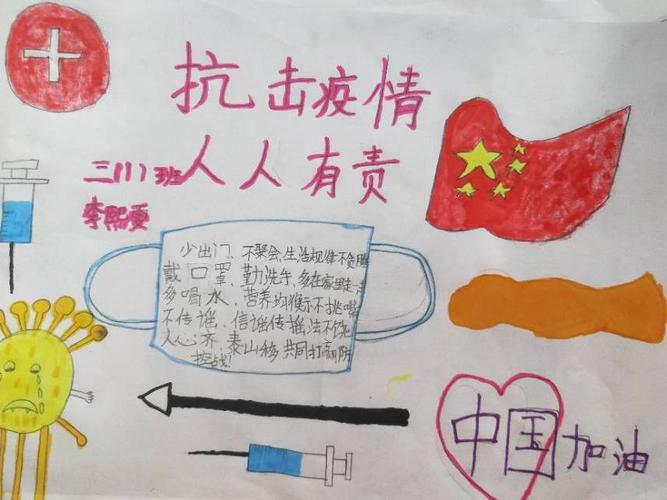 抗击疫情
人人有责
三(1)班
李熙
少出门、不聚会、生活规律不
戴口罩、勤洗手、多在家里走
多喝水、营养均衡不挑嘴
不传谣、信谣传谣法不饶
人心齐、泰山移、共同打赢阴
控战!
中国加油